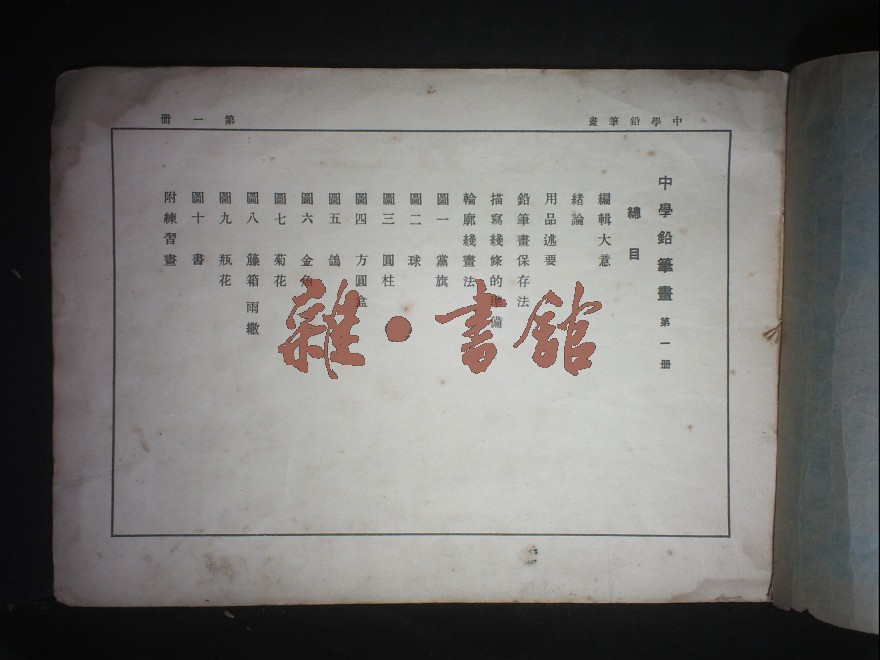 中學鉛筆畫
第一冊
中學鉛筆畫 第一册
總目
編輯大意
緒論
用品述要
鉛筆畫保存法
描寫綫條的準備
輪廓綫畫法
圖一 黨旗
圖二 球
圖三 圓柱
圖四 方圓盒
圖五 鴿
圖六 金魚
圖七 菊花
圖八 籐箱 雨繖
圖九 瓶花
圖十 書
附練習畫
雜·書館